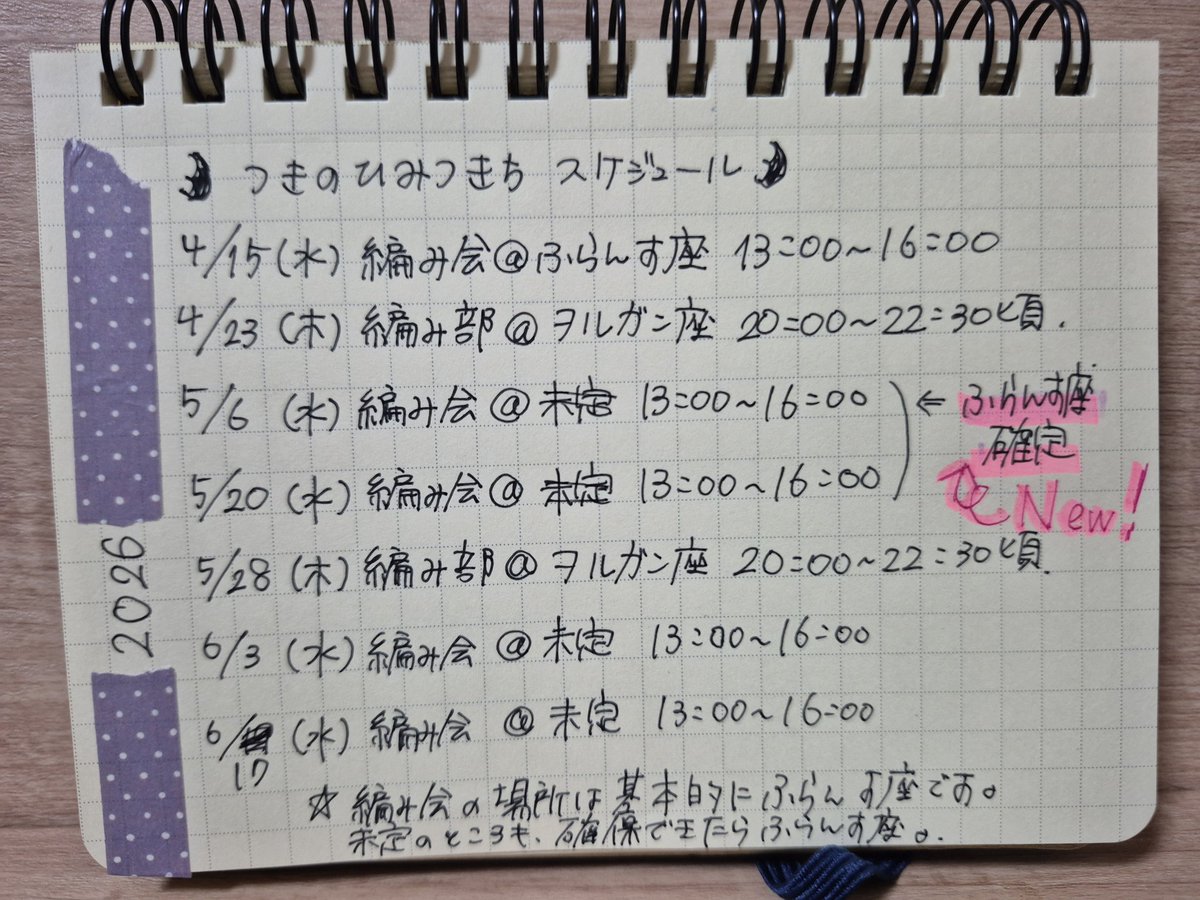 つきのひみつきち スケジュール
4/15(水) 編み会@ふらんす座 13:00~16:00
4/23(木) 編み部@ヲルガン座 20:00~22:30頃.
5/6(水) 編み会@未定 13:00~16:00
5/20(水) 編み会@未定 13:00~16:00
← ふらんす座
確定
New!
5/28(木) 編み部@ヲルガン座 20:00~22:30頃.
6/3(水) 編み会@未定 13:00~16:00
6/17(水) 編み会@未定 13:00~16:00
☆編み会の場所は基本的にふらんす座です。
未定のところも、確保できたらふらんす座。
2026